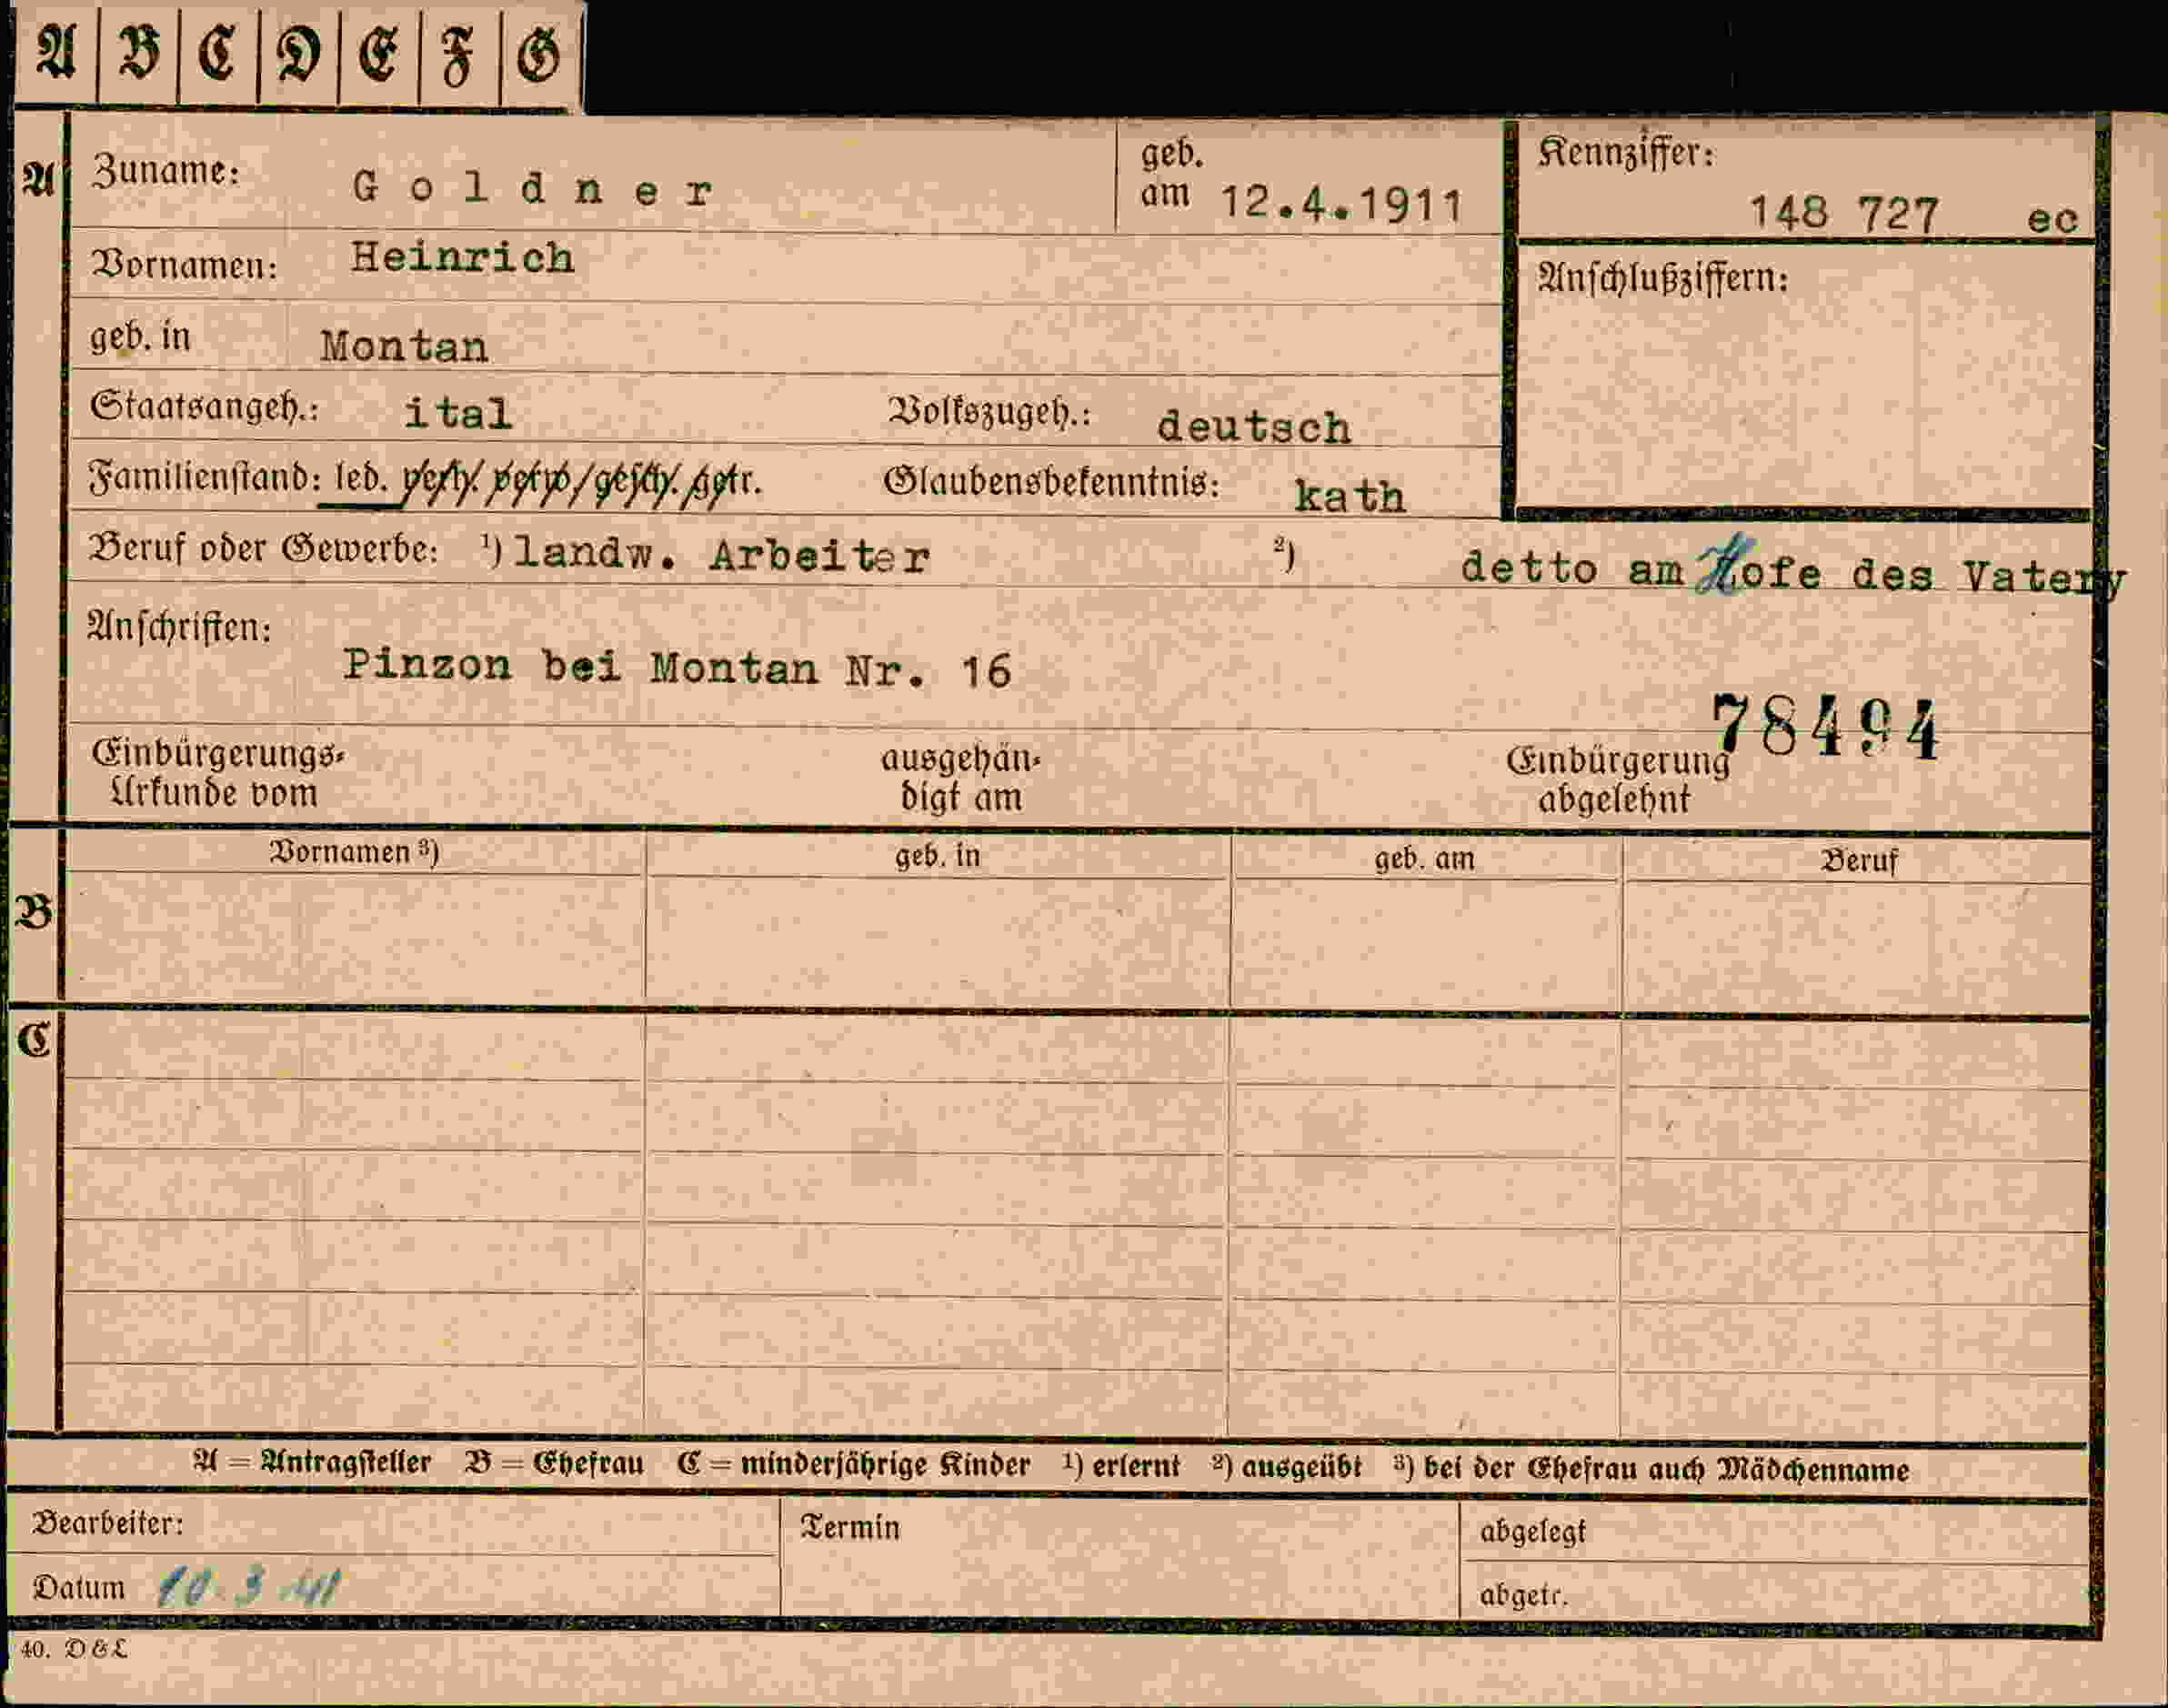 A B C D E F G
A Zuname: Goldner geb. am 12.4.1911 Kennziffer: 148 727 ec
Vornamen: Heinrich Anschlußziffern:
geb. in Montan
Staatsangeh.: ital Volkszugeh.: deutsch
Familienstand: led. verh. verw. gesch. getr. Glaubensbekenntnis: kath
Beruf oder Gewerbe: ¹) landw. Arbeiter ²) detto am Hofe des Vaters
Anschriften:
Pinzon bei Montan Nr. 16
78494
Einbürgerungs- ausgehän- Einbürgerung
Urkunde vom digt am abgelehnt
Vornamen ³) geb. in geb. am Beruf
B
C
A = Antragsteller B = Ehefrau C = minderjährige Kinder ¹) erlernt ²) ausgeübt ³) bei der Ehefrau auch Mädchenname
Bearbeiter: Termin abgelegt
Datum 10.3.41 abgetr.
40. D&L